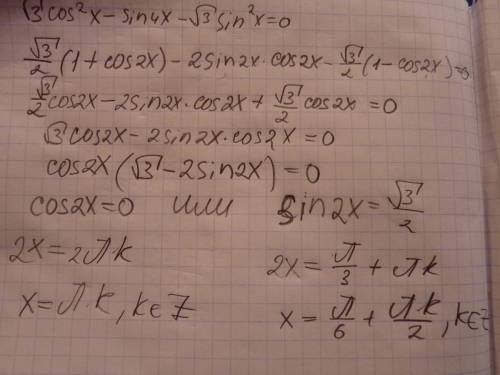 √3 cos²x - sin4x - √3 sin²x = 0
√3/2 (1 + cos2x) - 2sin2x · cos2x - √3/2 (1 - cos2x) = 0
√3/2 cos2x - 2sin2x · cos2x + √3/2 cos2x = 0
√3 cos2x - 2sin2x · cos2x = 0
cos2x (√3 - 2sin2x) = 0
cos2x = 0 или sin2x = √3/2
2x = 2πk 2x = π/3 + πk
x = π·k, k∈Z x = π/6 + πk/2, k∈Z